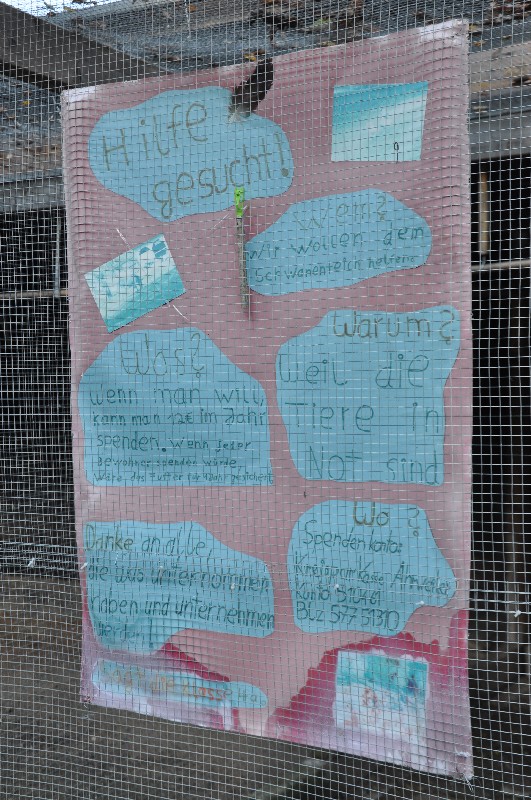 Hilfe
gesucht!
Wem?
Wir wollen dem
Schwanenteich helfen
Was?
Wenn man will,
kann man 12€ im Jahr
spenden. Wenn jeder
Bewohner spenden würde,
wäre das Futter für 1 Jahr gesichert
Warum?
Weil die
Tiere in
Not sind
Wo?
Spendenkonto:
Kreissparkasse Ahrweiler
Konto
Blz 577 51310
Danke an alle,
die was unternommen
haben und unternehmen
werden!